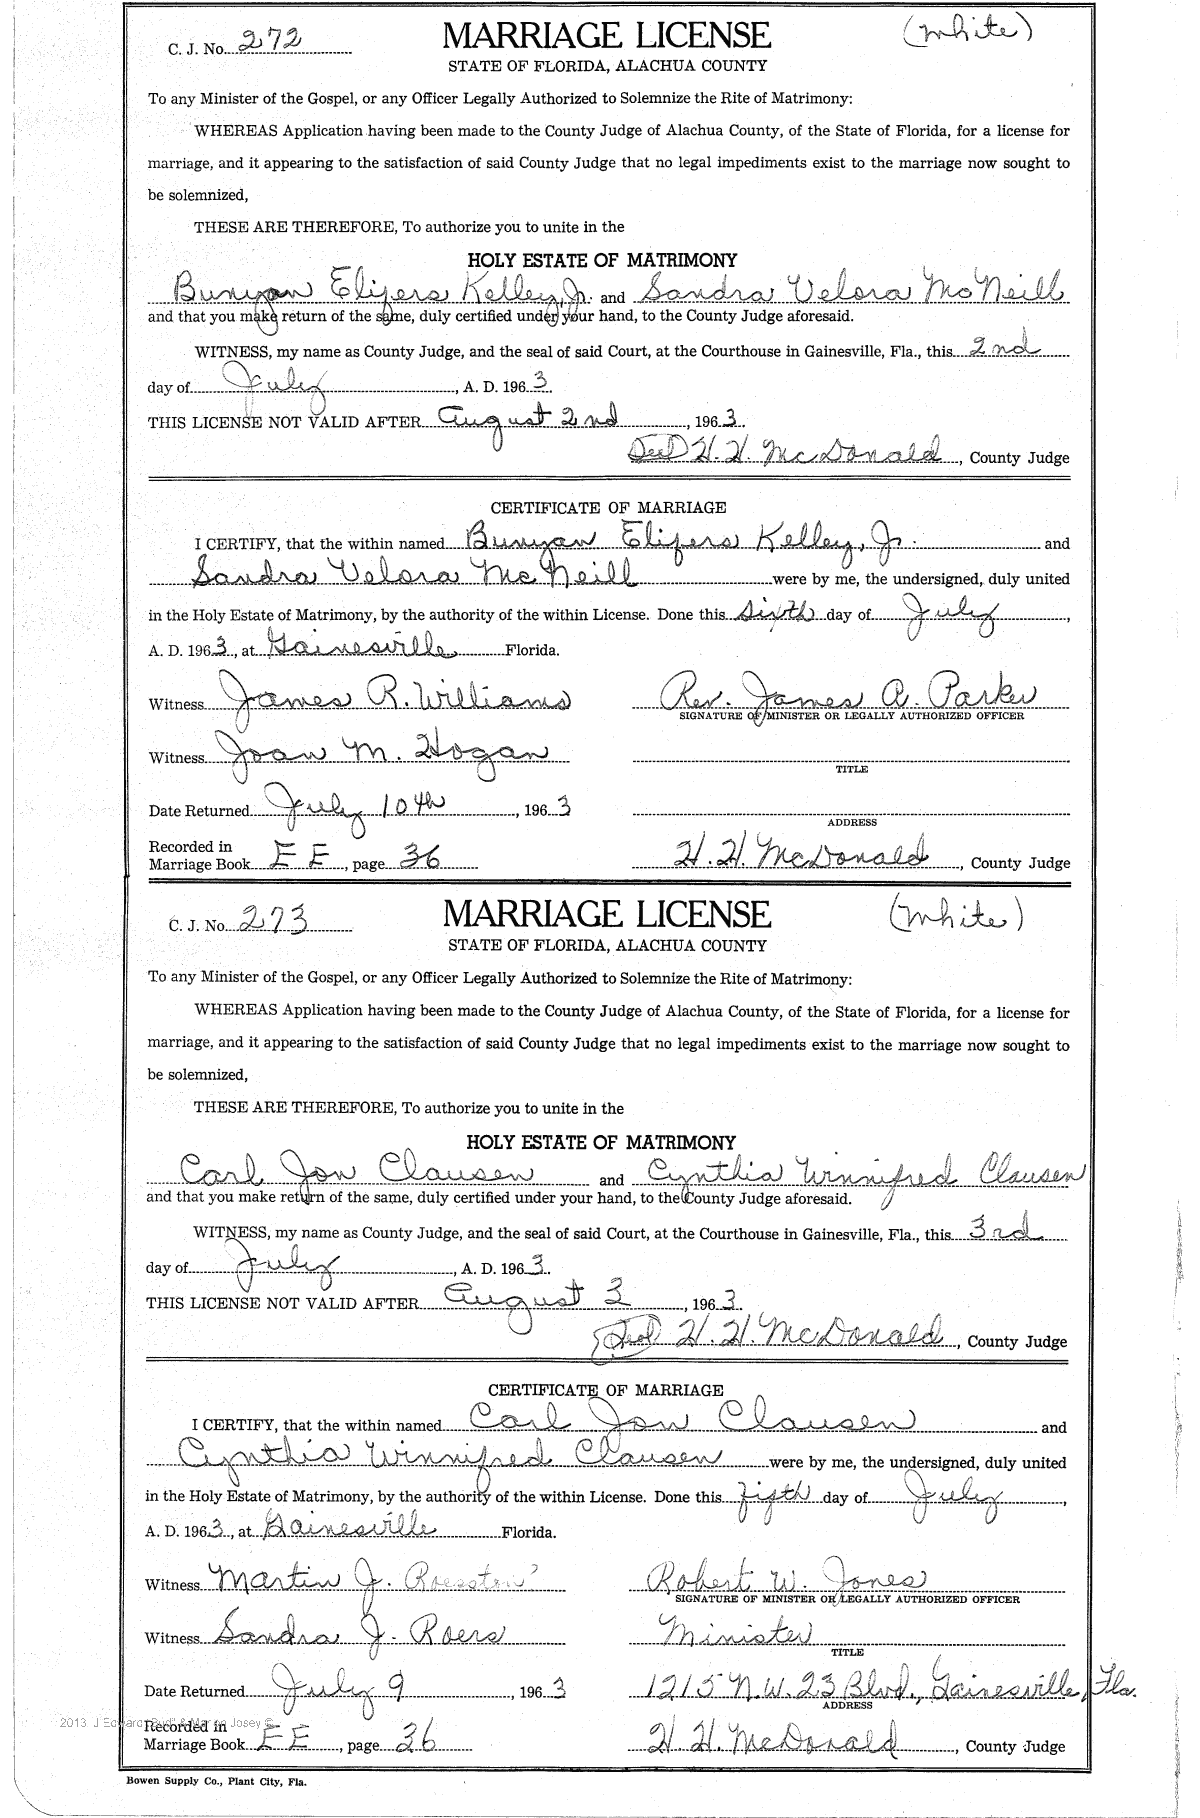 C. J. No. 272 MARRIAGE LICENSE (White)
STATE OF FLORIDA, ALACHUA COUNTY
To any Minister of the Gospel, or any Officer Legally Authorized to Solemnize the Rite of Matrimony:
WHEREAS Application having been made to the County Judge of Alachua County, of the State of Florida, for a license for
marriage, and it appearing to the satisfaction of said County Judge that no legal impediments exist to the marriage now sought to
be solemnized,
THESE ARE THEREFORE, To authorize you to unite in the
HOLY ESTATE OF MATRIMONY
Bunyan Elifers Kelley, Jr. and Sandra Velora McNeill
and that you make return of the same, duly certified under your hand, to the County Judge aforesaid.
WITNESS, my name as County Judge, and the seal of said Court, at the Courthouse in Gainesville, Fla., this 2nd
day of July, A. D. 1963.
THIS LICENSE NOT VALID AFTER August 2nd, 1963.
(Seal) H. H. McDonald, County Judge
CERTIFICATE OF MARRIAGE
I CERTIFY, that the within named Bunyan Elifers Kelley, Jr. and
Sandra Velora McNeill were by me, the undersigned, duly united
in the Holy Estate of Matrimony, by the authority of the within License. Done this sixth day of July,
A. D. 1963, at Gainesville Florida.
Witness James R. Williams Rev. James A. Parker
SIGNATURE OF MINISTER OR LEGALLY AUTHORIZED OFFICER
Witness Joan M. Hogan
TITLE
Date Returned July 10th, 1963
ADDRESS
Recorded in
Marriage Book EE, page 36 H. H. McDonald, County Judge
C. J. No. 273 MARRIAGE LICENSE (White)
STATE OF FLORIDA, ALACHUA COUNTY
To any Minister of the Gospel, or any Officer Legally Authorized to Solemnize the Rite of Matrimony:
WHEREAS Application having been made to the County Judge of Alachua County, of the State of Florida, for a license for
marriage, and it appearing to the satisfaction of said County Judge that no legal impediments exist to the marriage now sought to
be solemnized,
THESE ARE THEREFORE, To authorize you to unite in the
HOLY ESTATE OF MATRIMONY
Carl Jon Clausen and Cynthia Winnifred Clausen
and that you make return of the same, duly certified under your hand, to the County Judge aforesaid.
WITNESS, my name as County Judge, and the seal of said Court, at the Courthouse in Gainesville, Fla., this 3rd
day of July, A. D. 1963.
THIS LICENSE NOT VALID AFTER August 3, 1963.
(Seal) H. H. McDonald, County Judge
CERTIFICATE OF MARRIAGE
I CERTIFY, that the within named Carl Jon Clausen and
Cynthia Winnifred Clausen were by me, the undersigned, duly united
in the Holy Estate of Matrimony, by the authority of the within License. Done this fifth day of July,
A. D. 1963, at Gainesville Florida.
Witness Martin J. Robert W. Jones
SIGNATURE OF MINISTER OR LEGALLY AUTHORIZED OFFICER
Witness Sandra J. Roers Minister
TITLE
Date Returned July 9, 1963 1215 N.W. 23 Blvd., Gainesville, Fla.
ADDRESS
2013 J Edward "Bud" & Marion Josey ©
Recorded in
Marriage Book EE, page 36 H. H. McDonald, County Judge
Bowen Supply Co., Plant City, Fla.